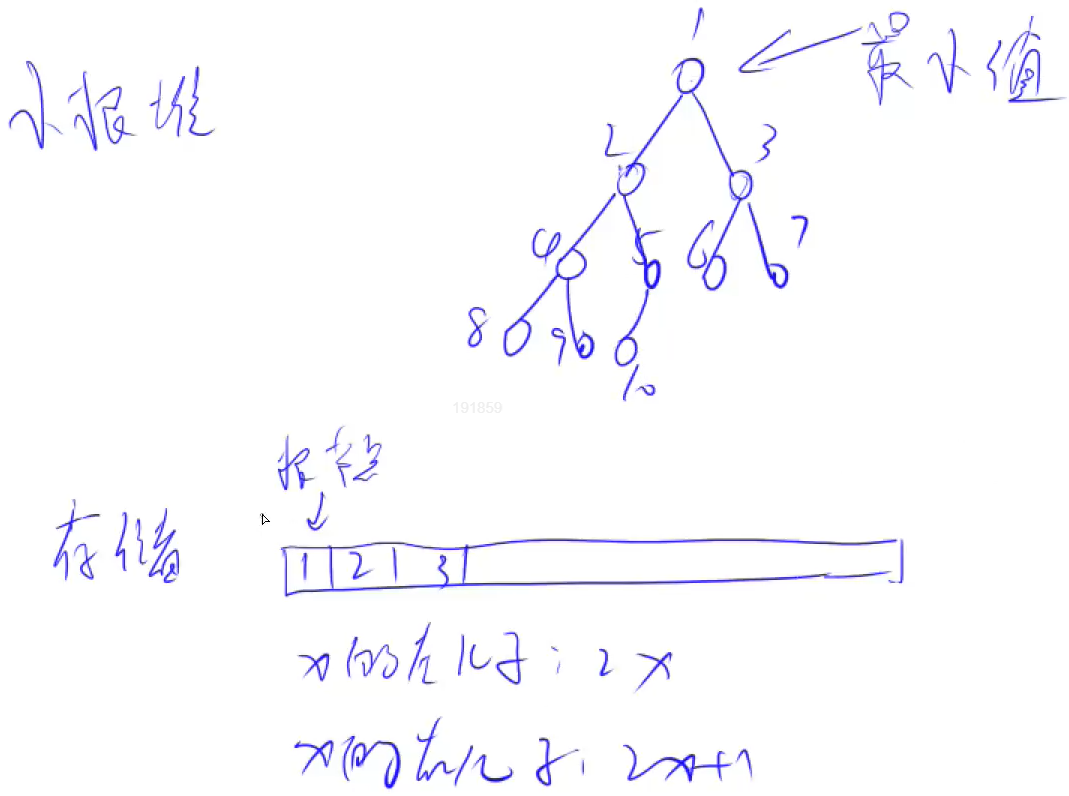 1
最小值
小根堆
2 3
4 5 6 7
8 9 10
191859
根节点
存储
1 2 3
x的左儿子: 2x
x的右儿子: 2x+1